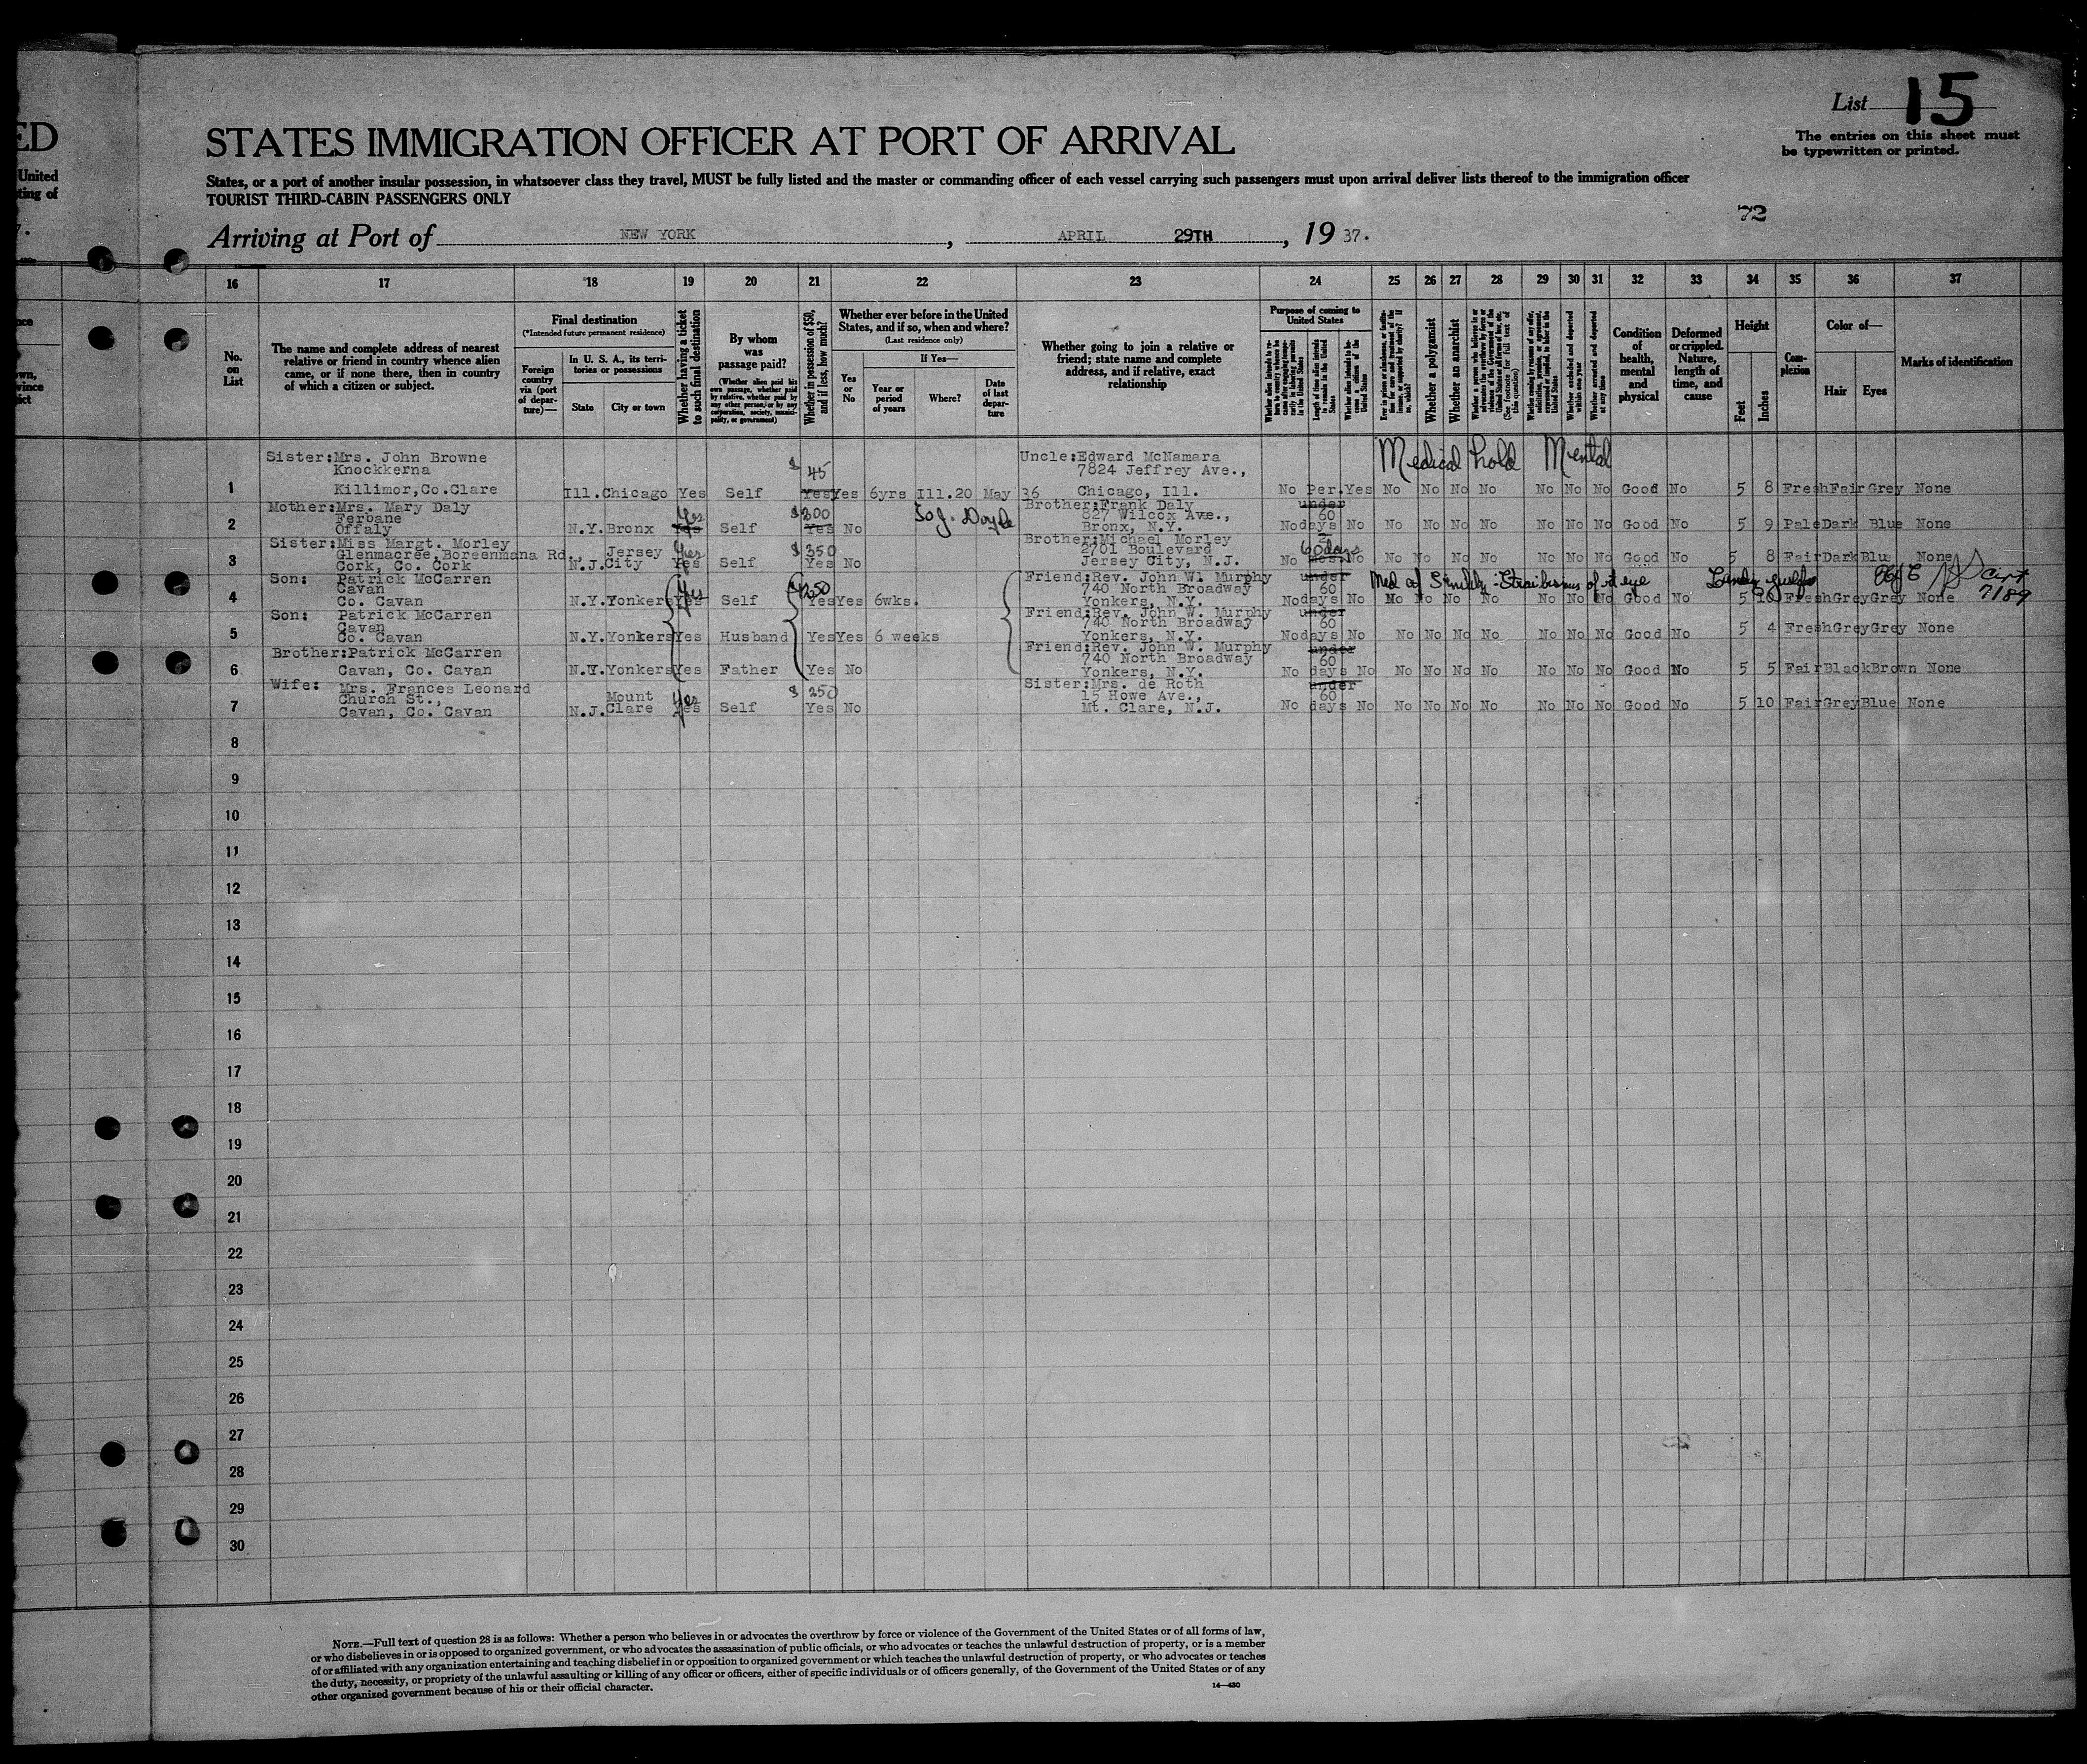 List 15
The entries on this sheet must
be typewritten or printed.
ED
STATES IMMIGRATION OFFICER AT PORT OF ARRIVAL
United
States, or a port of another insular possession, in whatsoever class they travel, MUST be fully listed and the master or commanding officer of each vessel carrying such passengers must upon arrival deliver lists thereof to the immigration officer
ting of
TOURIST THIRD-CABIN PASSENGERS ONLY
72
Arriving at Port of NEW YORK, APRIL 29TH, 19 37.
16 17 18 19 20 21 22 23 24 25 26 27 28 29 30 31 32 33 34 35 36 37
No. on List
The name and complete address of nearest
relative or friend in country whence alien
came, or if none there, then in country
of which a citizen or subject.
Final destination
(*Intended future permanent residence)
Foreign country via (port of departure)—
In U. S. A., its territories or possessions
State
City or town
Whether having a ticket to such final destination
By whom was passage paid?
(Whether alien paid his own passage, whether paid by relative, whether paid by any other person, or by any corporation, society, municipality, or government)
Whether in possession of $50, and if less, how much?
Whether ever before in the United
States, and if so, when and where?
(Last residence only)
Yes or No
If Yes—
Year or period of years
Where?
Date of last departure
Whether going to join a relative or
friend; state name and complete
address, and if relative, exact
relationship
Purpose of coming to
United States
Length of time alien intends to remain in the United States
Whether alien intends to become a citizen of the United States
Whether a polygamist
Whether an anarchist
(See footnote for full text of this question)
Whether excluded and deported within one year
Whether arrested and deported at any time
Condition of health, mental and physical
Deformed or crippled. Nature, length of time, and cause
Height
Feet
Inches
Complexion
Color of—
Hair
Eyes
Marks of identification
Sister:Mrs. John Browne Uncle:Edward McNamara Medical hold Mental
Knockkerna $ 45 7824 Jeffrey Ave.,
1 Killimor,Co.Clare Ill.Chicago Yes Self Yes Yes 6yrs Ill.20 May 36 Chicago, Ill. No Per.Yes No No No No No No No Good No 5 8 Fresh Fair Grey None
Mother:Mrs. Mary Daly Brother:Frank Daly under
Ferbane Yes $300 Jos. Doyle 827 Wilcox Ave., 60
2 Offaly N.Y. Bronx Yes Self Yes No Bronx, N.Y. No days No No No No No No No No Good No 5 9 Pale Dark Blue None
Sister:Miss Margt. Morley Brother:Michael Morley 2
Glenmacree,Boreenmana Rd., Jersey Yes $350 2701 Boulevard 60 days
3 Cork, Co. Cork N.J. City Yes Self Yes No Jersey City, N.J. No mos. No No No No No No No No Good No 5 8 Fair Dark Blue None
Son: Patrick McCarren Friend:Rev. John W. Murphy under
Cavan Yes $1250 740 North Broadway 60
4 Co. Cavan N.Y.Yonkers Yes Self Yes Yes 6wks. Yonkers, N.Y. No days No No No No No No No No Good No 5 10 Fresh Grey Grey None 7189
Son: Patrick McCarren Friend:Rev. John W. Murphy under
Cavan 740 North Broadway 60
5 Co. Cavan N.Y.Yonkers Yes Husband Yes Yes 6 weeks Yonkers, N.Y. No days No No No No No No No No Good No 5 4 Fresh Grey Grey None
Brother:Patrick McCarren Friend:Rev. John W. Murphy under
740 North Broadway 60
6 Cavan, Co. Cavan N.Y.Yonkers Yes Father Yes No Yonkers, N.Y. No days No No No No No No No No Good No 5 5 Fair Black Brown None
Wife: Mrs. Frances Leonard Sister:Mrs. de Roth under
Church St., Mount Yes $ 250 15 Howe Ave., 60
7 Cavan, Co. Cavan N.J. Clare Yes Self Yes No Mt. Clare, N.J. No days No No No No No No No No Good No 5 10 Fair Grey Blue None
8
9
10
11
12
13
14
15
16
17
18
19
20
21
22
23
24
25
26
27
28
29
30
NOTE.—Full text of question 28 is as follows: Whether a person who believes in or advocates the overthrow by force or violence of the Government of the United States or of all forms of law,
or who disbelieves in or is opposed to organized government, or who advocates the assassination of public officials, or who advocates or teaches the unlawful destruction of property, or is a member
of or affiliated with any organization entertaining and teaching disbelief in or opposition to organized government or which teaches the unlawful destruction of property, or who advocates or teaches
the duty, necessity, or propriety of the unlawful assaulting or killing of any officer or officers, either of specific individuals or of officers generally, of the Government of the United States or of any
other organized government because of his or their official character.
14—430